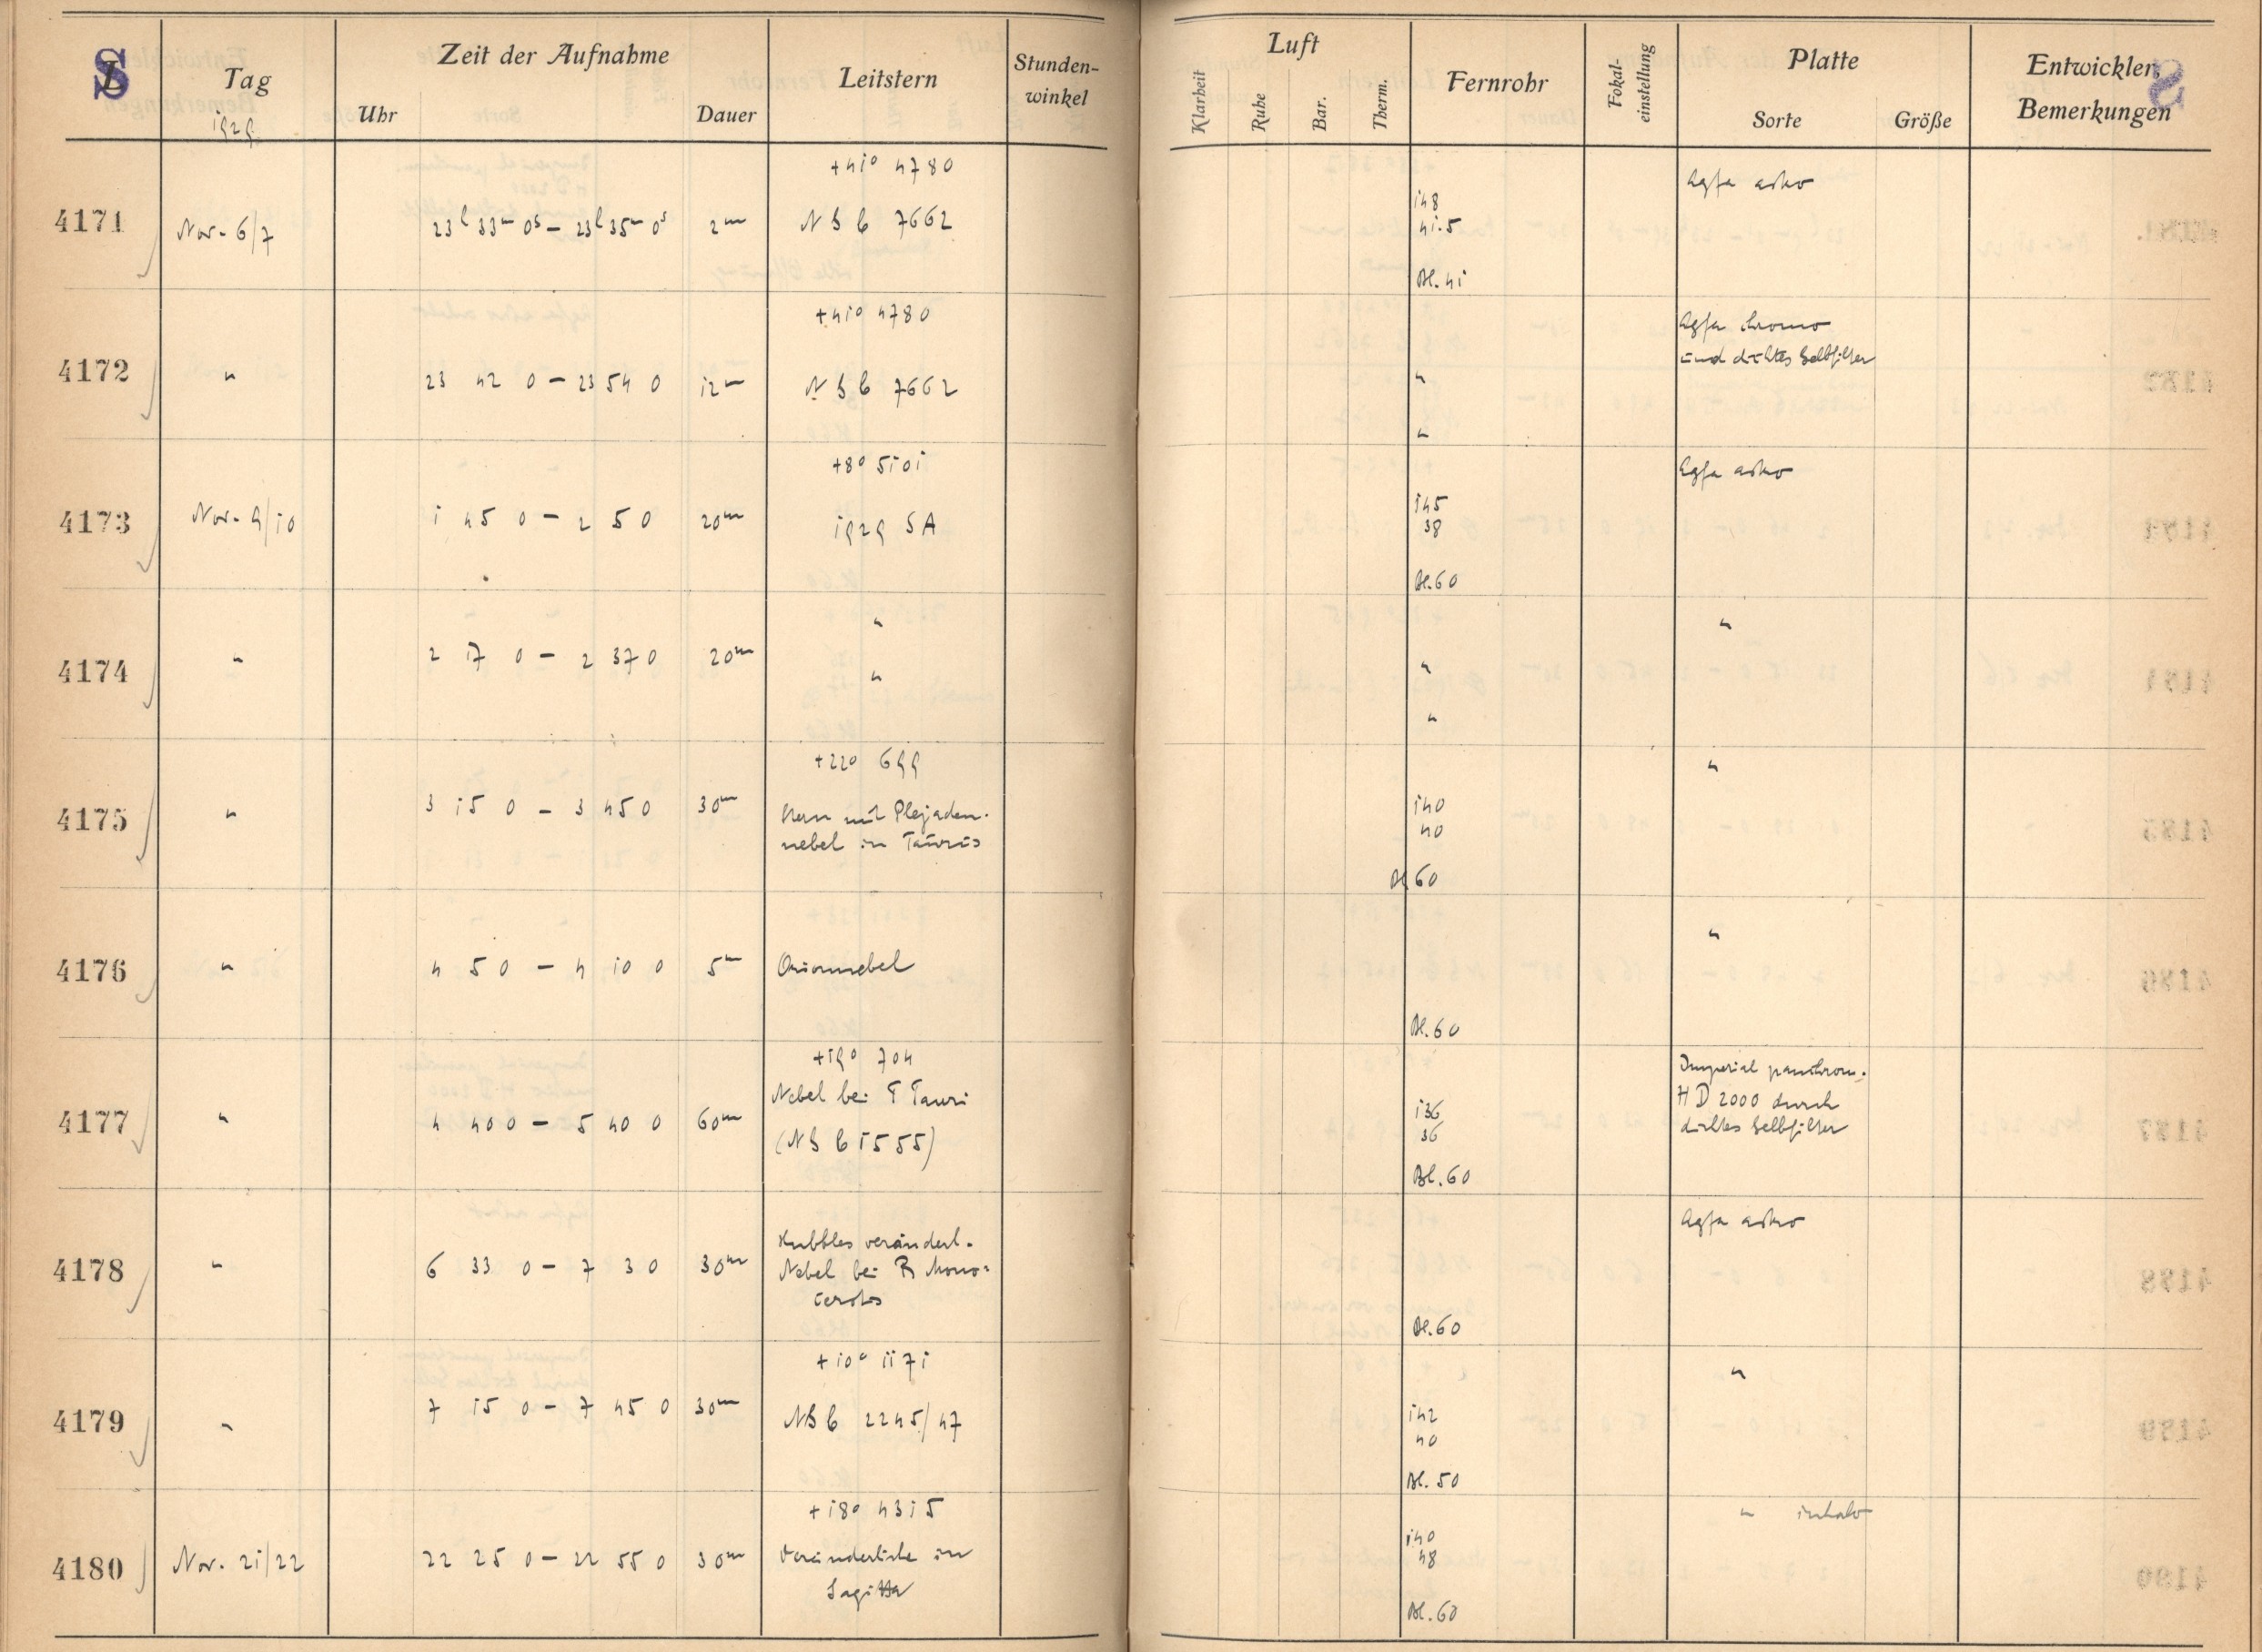 S
Tag
1929
Zeit der Aufnahme
Uhr
Dauer
Leitstern
Stunden-
winkel
Luft
Klarheit
Ruhe
Bar.
Therm.
Fernrohr
Fokal-
einstellung
Platte
Sorte
Größe
Entwickler,
Bemerkungen
4171
Nov. 6/7
23h 33m 0s – 23h 35m 0s
2m
+41° 4780
N G C 7662
148
41.5
Bl. 41
Agfa astro
4172
"
23 42 0 – 23 54 0
12m
+41° 4780
N G C 7662
"
"
Agfa chromo
und dichtes Gelbfilter
4173
Nov. 9/10
1 45 0 – 2 5 0
20m
+8° 5101
1929 SA
145
38
Bl. 60
Agfa astro
4174
"
2 17 0 – 2 37 0
20m
"
"
"
"
"
4175
"
3 15 0 – 3 45 0
30m
+22° 699
Stern mit Plejaden-
nebel in Taurus
140
40
Bl 60
"
4176
"
4 5 0 – 4 10 0
5m
Orionnebel
Bl. 60
"
4177
"
4 40 0 – 5 40 0
60m
+19° 704
Nebel bei T Tauri
(N G C 1555)
136
36
Bl. 60
Imperial panchrom.
H D 2000 durch
dichtes Gelbfilter
4178
"
6 33 0 – 7 3 0
30m
Hubbles veränderl.
Nebel bei R Mono-
cerotis
Bl. 60
Agfa astro
4179
"
7 15 0 – 7 45 0
30m
+10° 1171
NGC 2245/47
142
40
Bl. 50
"
4180
Nov. 21/22
22 25 0 – 22 55 0
30m
+18° 4315
Veränderliche in
Sagitta
140
48
Bl. 60
"